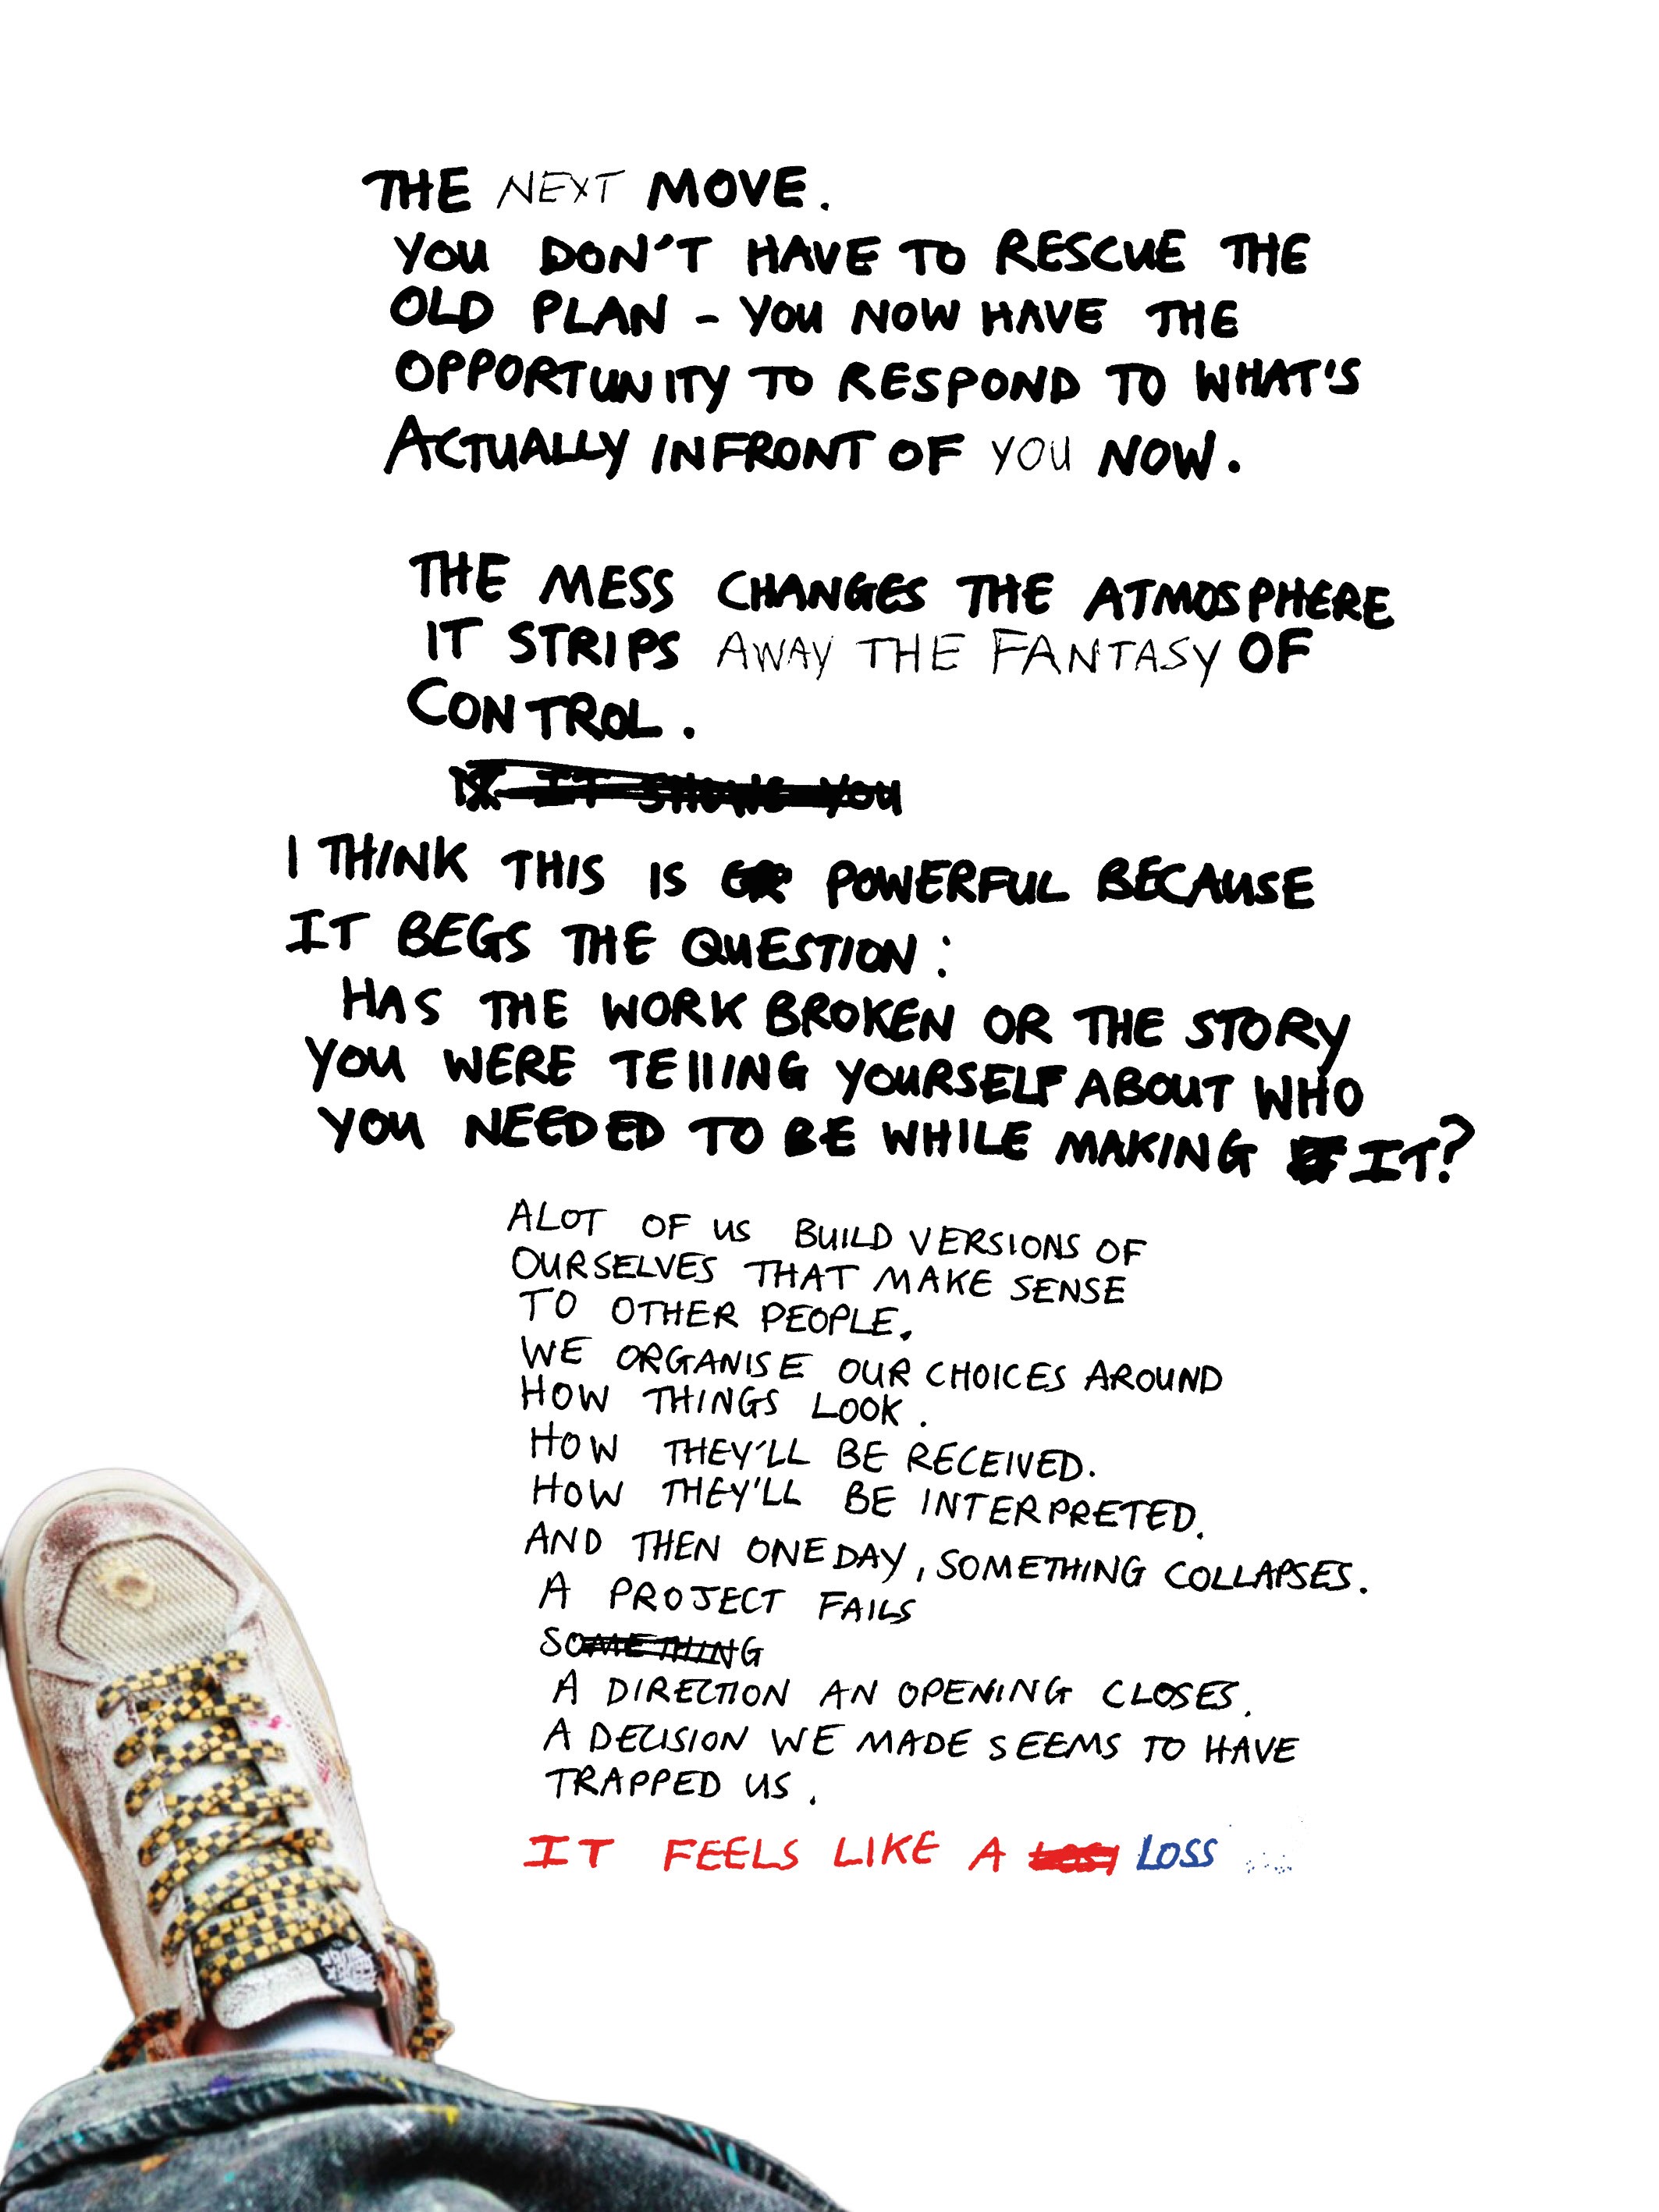 THE NEXT MOVE.
YOU DON'T HAVE TO RESCUE THE
OLD PLAN - YOU NOW HAVE THE
OPPORTUNITY TO RESPOND TO WHAT'S
ACTUALLY INFRONT OF YOU NOW.
THE MESS CHANGES THE ATMOSPHERE
IT STRIPS AWAY THE FANTASY OF
CONTROL.
IT SHOWS YOU
I THINK THIS IS POWERFUL BECAUSE
IT BEGS THE QUESTION:
HAS THE WORK BROKEN OR THE STORY
YOU WERE TEllING YOURSELF ABOUT WHO
YOU NEEDED TO BE WHILE MAKING IT?
ALOT OF US BUILD VERSIONS OF
OURSELVES THAT MAKE SENSE
TO OTHER PEOPLE.
WE ORGANISE OUR CHOICES AROUND
HOW THINGS LOOK.
HOW THEY'LL BE RECEIVED.
HOW THEY'LL BE INTERPRETED.
AND THEN ONE DAY, SOMETHING COLLAPSES.
A PROJECT FAILS
SOMETHING
A DIRECTION AN OPENING CLOSES.
A DECISION WE MADE SEEMS TO HAVE
TRAPPED US.
IT FEELS LIKE A LOSS